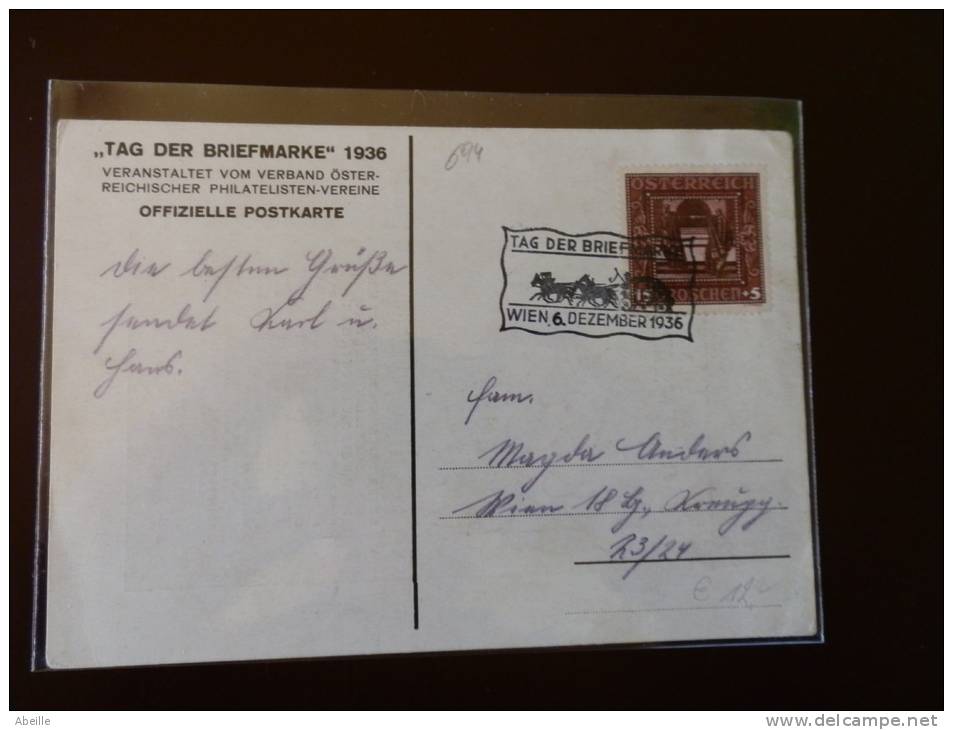 „TAG DER BRIEFMARKE" 1936
VERANSTALTET VOM VERBAND ÖSTER-
REICHISCHER PHILATELISTEN-VEREINE
OFFIZIELLE POSTKARTE
die besten Grüße
sendet Karl u.
Hans.
694
ÖSTERREICH
GROSCHEN +5
TAG DER BRIEFMARKE
WIEN, 6. DEZEMBER 1936
Fam.
Magda Anders
Wien 18 Bg.,
23/24
€ 12,-
Abeille
www.delcampe.net